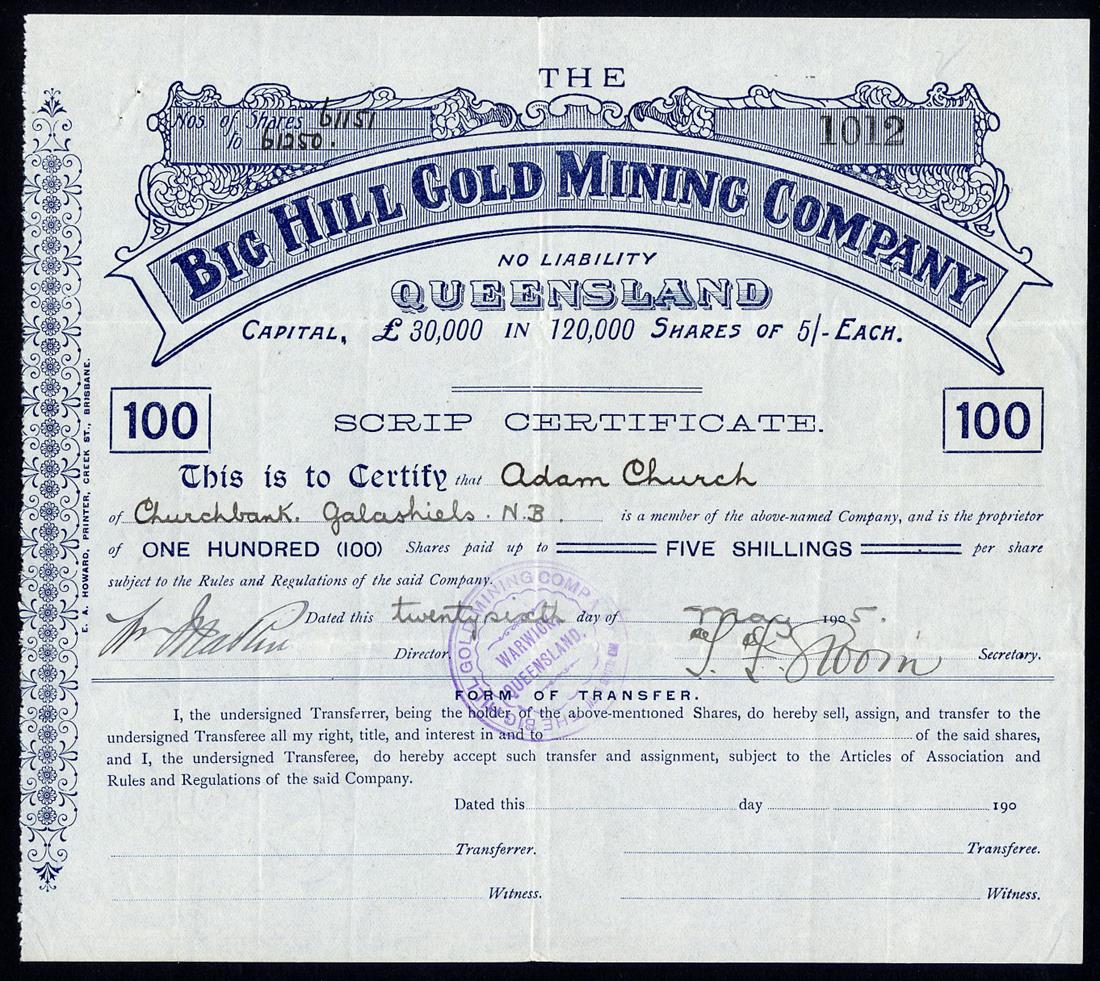 THE
Nos. of Shares 61151
to 61250.
1012
BIG HILL GOLD MINING COMPANY
NO LIABILITY
QUEENSLAND
CAPITAL, £30,000 IN 120,000 SHARES OF 5/- EACH.
100
100
SCRIP CERTIFICATE.
This is to Certify that Adam Church
of Churchbank. Galashiels. N.B. is a member of the above-named Company, and is the proprietor
of ONE HUNDRED (100) Shares paid up to FIVE SHILLINGS per share
subject to the Rules and Regulations of the said Company.
Dated this twentysixth day of May 1905.
Director. Secretary.
THE BIG HILL GOLD MINING COMPANY
WARWICK,
QUEENSLAND.
FORM OF TRANSFER.
I, the undersigned Transferrer, being the holder of the above-mentioned Shares, do hereby sell, assign, and transfer to the
undersigned Transferee all my right, title, and interest in and to of the said shares,
and I, the undersigned Transferee, do hereby accept such transfer and assignment, subject to the Articles of Association and
Rules and Regulations of the said Company.
Dated this day 190
Transferrer. Transferee.
Witness. Witness.
E. A. HOWARD, PRINTER, CREEK ST., BRISBANE.